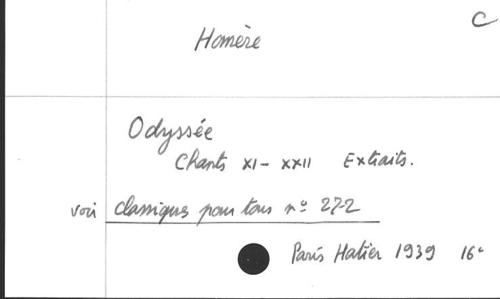 C
Homère
Odyssée
Chants XI - XXII Extraits.
voir classiques pour tous nº 272
Paris Hatier 1939 16º